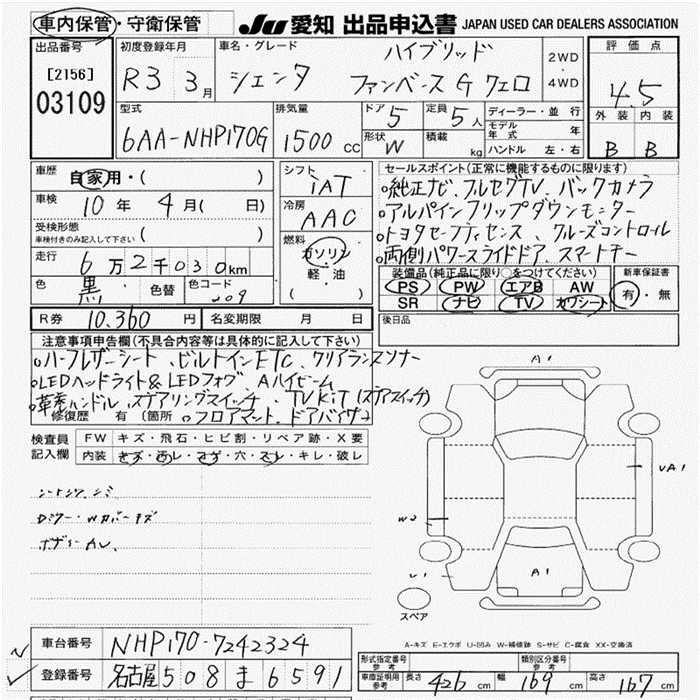 車内保管・守衛保管
JU 愛知 出品申込書 JAPAN USED CAR DEALERS ASSOCIATION
出品番号
[2156]
03109
初度登録年月
R3 3月
車名・グレード
ハイブリッド
シエンタ ファンベースG クエロ
2WD
・
4WD
評価点
4.5
外装 内装
B B
型式
6AA-NHP170G
排気量
1500 cc
ドア 5
定員 5人
形状 W
積載 kg
ディーラー・並行
モデル年式 年
ハンドル 左・右
車歴 自家用・( )
車検 10年 4月( 日)
受検形態
車検付きのみ記入して下さい ( )
走行 6万2千030km
色 黒 色替 色コード 209
R券 10,360円 名変期限 月 日
シフト
iAT
冷房
AAC
燃料
ガソリン
軽・油
( )
セールスポイント(正常に機能するものに限ります)
○純正ナビ、フルセグTV、バックカメラ
○アルパインフリップダウンモニター
○トヨタセーフティセンス、クルーズコントロール
○両側パワースライドドア、スマートキー
装備品(純正品に限り○をつけてください)
PS PW エアB AW
SR ナビ TV カワシート
新車保証書
有・無
後日品
注意事項申告欄(不具合内容等は具体的に記入して下さい)
○ハーフレザーシート、ビルトインETC、クリアランスソナー
○LEDヘッドライト&LEDフォグ、Aハイビーム
○革巻ハンドル、ステアリングスイッチ、TVKIT(ステアスイッチ)
修復歴 有(箇所 ○フロアマット、ドアバイザー
検査員記入欄
FW キズ・飛石・ヒビ割・リペア跡・X要
内装 キズ・汚レ・コゲ・穴・スレ・キレ・破レ
A1
UA1
W2
U1
A1
スペア
A-キズ E-エクボ U-凹み W-補修跡 S-サビ C-腐食 XX-交換済
車台番号 NHP170-7242324
登録番号 名古屋 508 ま 6591
形式指定番号 参考
類別区分番号 参考
車庫証明用 参考 長さ 426cm 幅 169cm 高さ 167cm